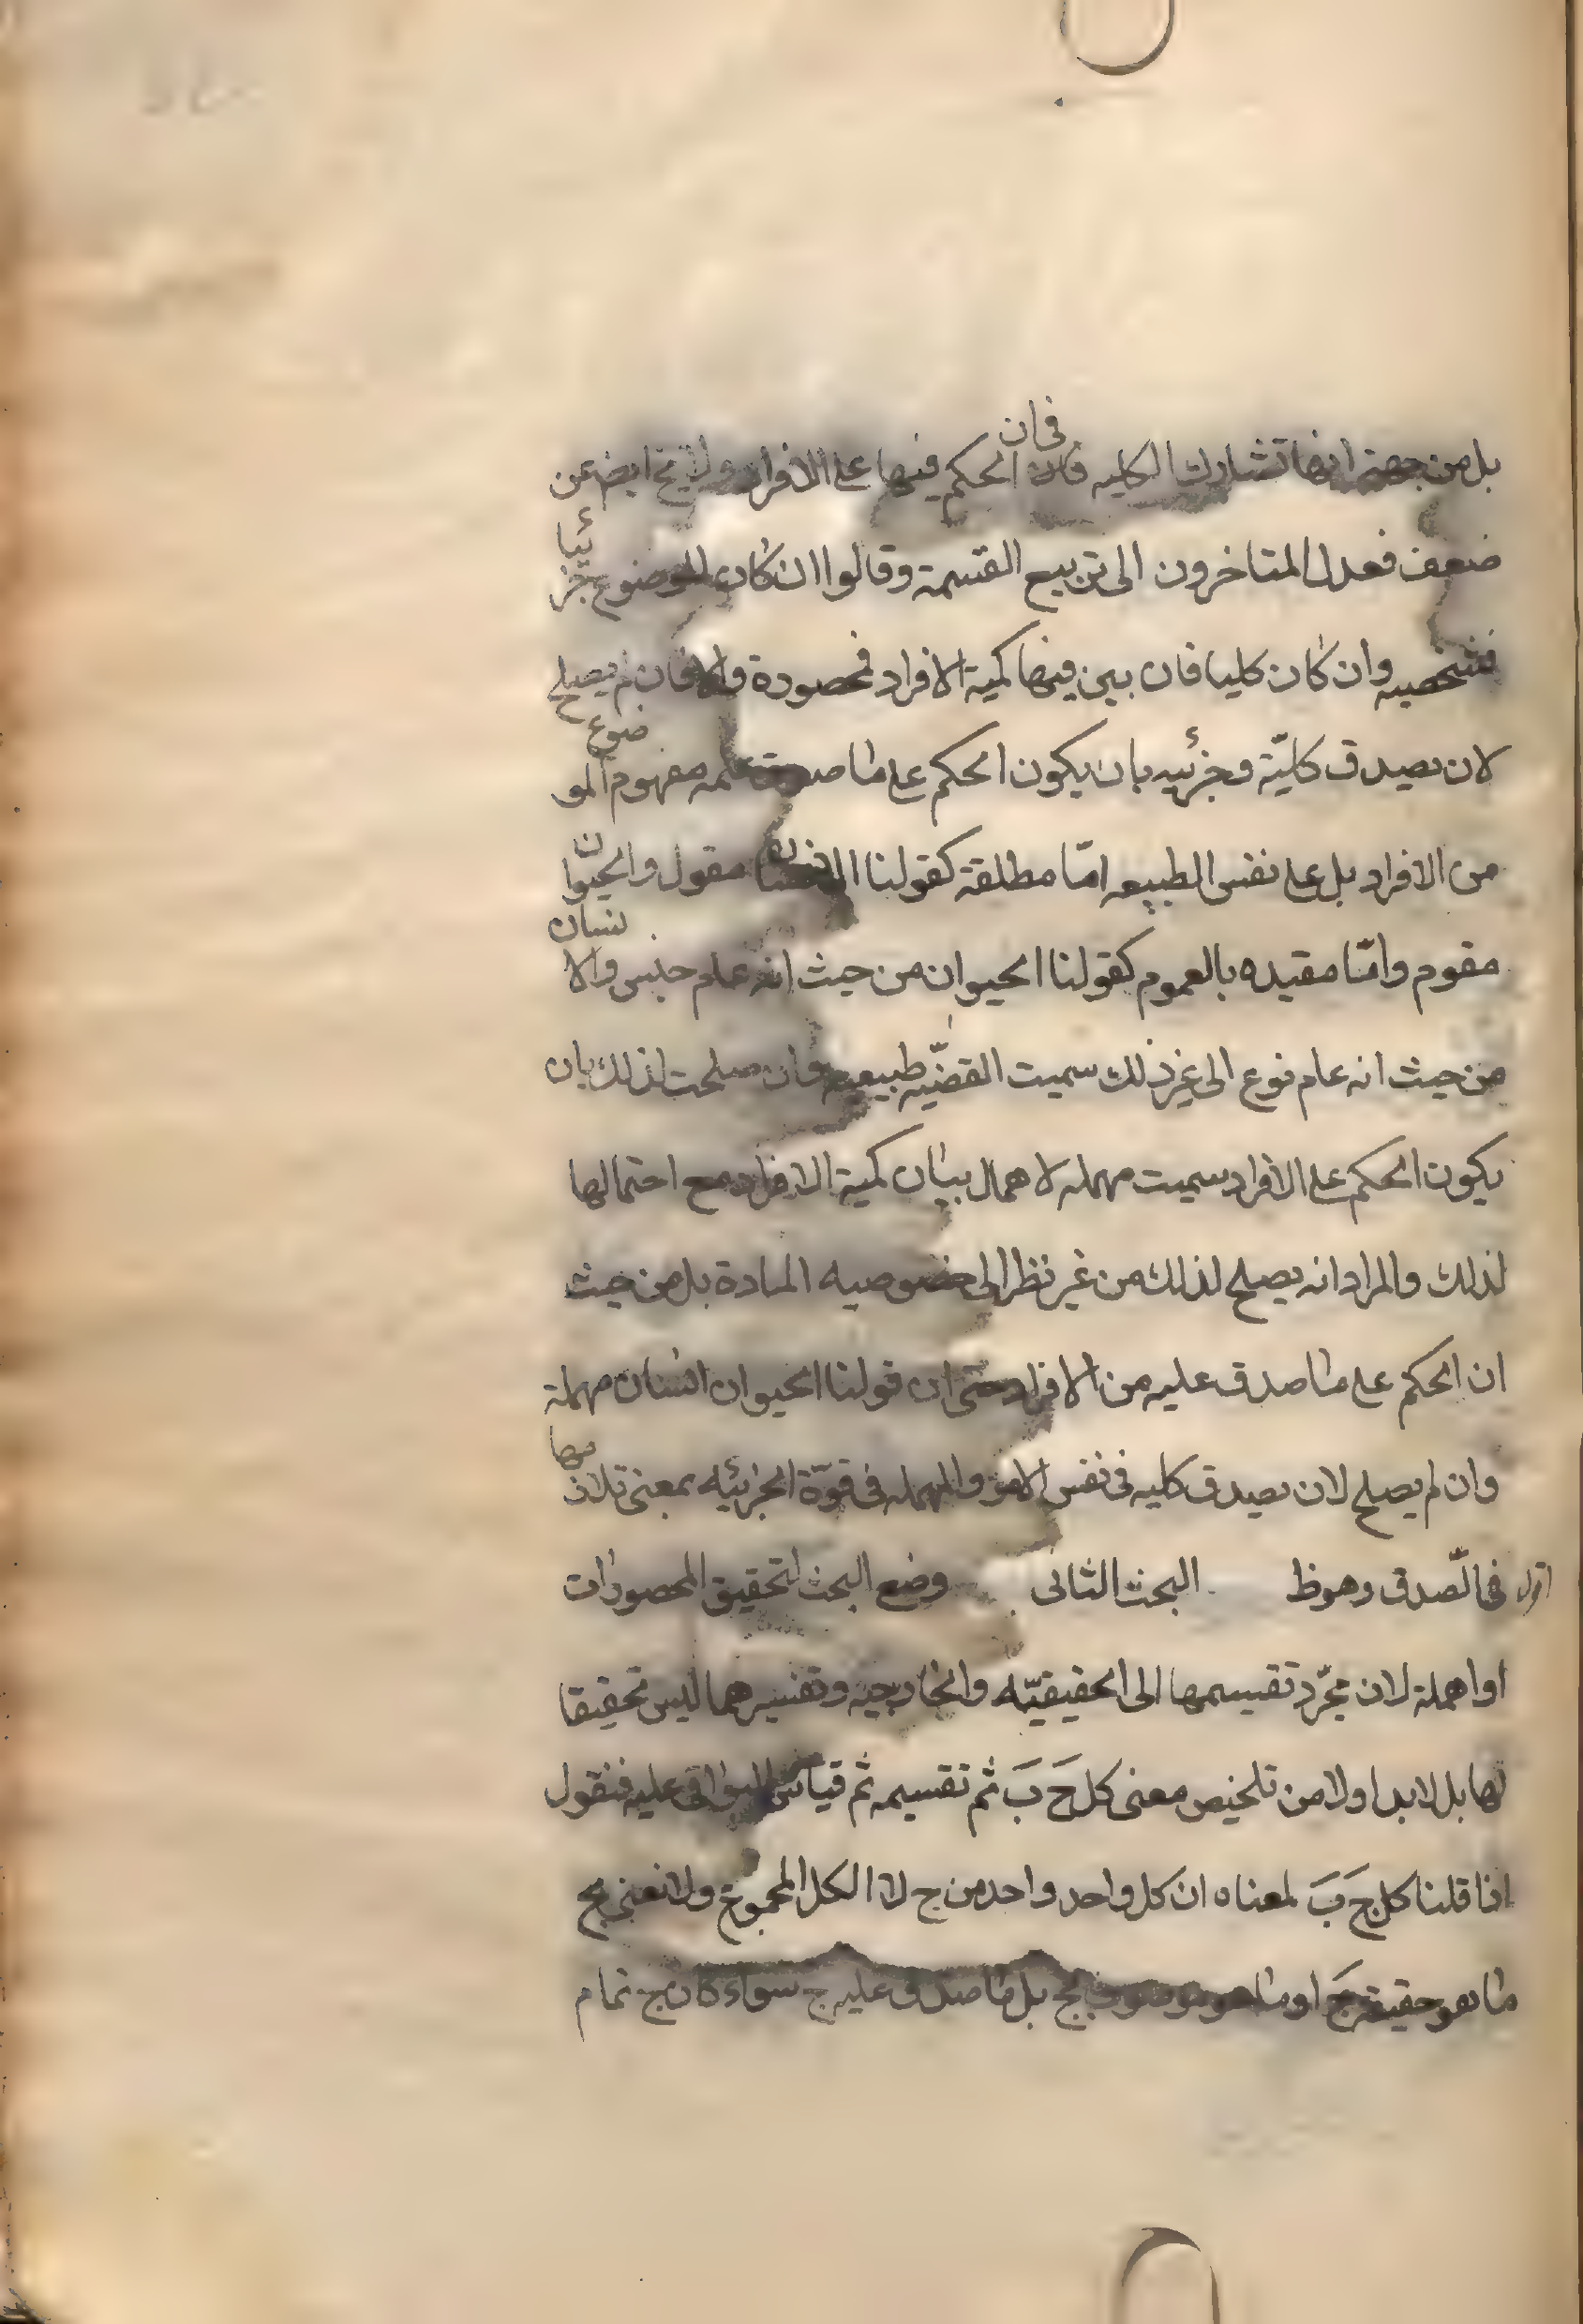 بل من جهة انها تشارك الكليه فى ان الحكم فيها على الافراد ولا يخ ايض عن
ضعف فعدل المتاخرون الى تربيع القسمة وقالوا ان كان الموضوع جزئيا
فشخصيه وان كان كليا فان بين فيها كمية الافراد فمحصورة والا فان لم يصلح
لان يصدق كليّة وجزئيه بان يكون الحكم على ما صدق عليه مفهوم الموضوع
من الافراد بل على نفس الطبيعه امّا مطلقة كقولنا الانسان مقول والحيوان
مقوم وامّا مقيده بالعموم كقولنا الحيوان من حيث انه عام جنس والانسان
من حيث انه عام نوع الى غير ذلك سميت القضيّه طبيعيه وان صلحت لذلك بان
يكون الحكم على الافراد سميت مهمله لاهمال بيان كمية الافراد مع احتمالها
لذلك والمراد انه يصلح لذلك من غير نظر الى خصوصيه المادة بل من حيث
ان الحكم على ما صدق عليه من الافراد حتى ان قولنا الحيوان انسان مهملة
وان لم يصلح لان يصدق كليه فى نفس الامر والمهمله فى قوّة الجزئيه بمعنى تلازمها
فى الصّدق وهو ظ البحث الثانى اقول وضع البحث لتحقيق المحصورات
او اهملة لان مجرّد تقسيمها الى الحقيقيّه والخارجيه وتفسيرهما ليس تحقيقا
لها بل لا بد اولا من تلخيص معنى كل ج ب ثم تقسيمه ثم قياس البواقى عليه فنقول
اذا قلنا كل ج ب لمعناه ان كل واحد واحد من ج لا الكل المجموع ولا نعنى بج
ما هو حقيقة ج او ما هو موصوف بج بل ما صدق عليه ج سواء كان ج تمام